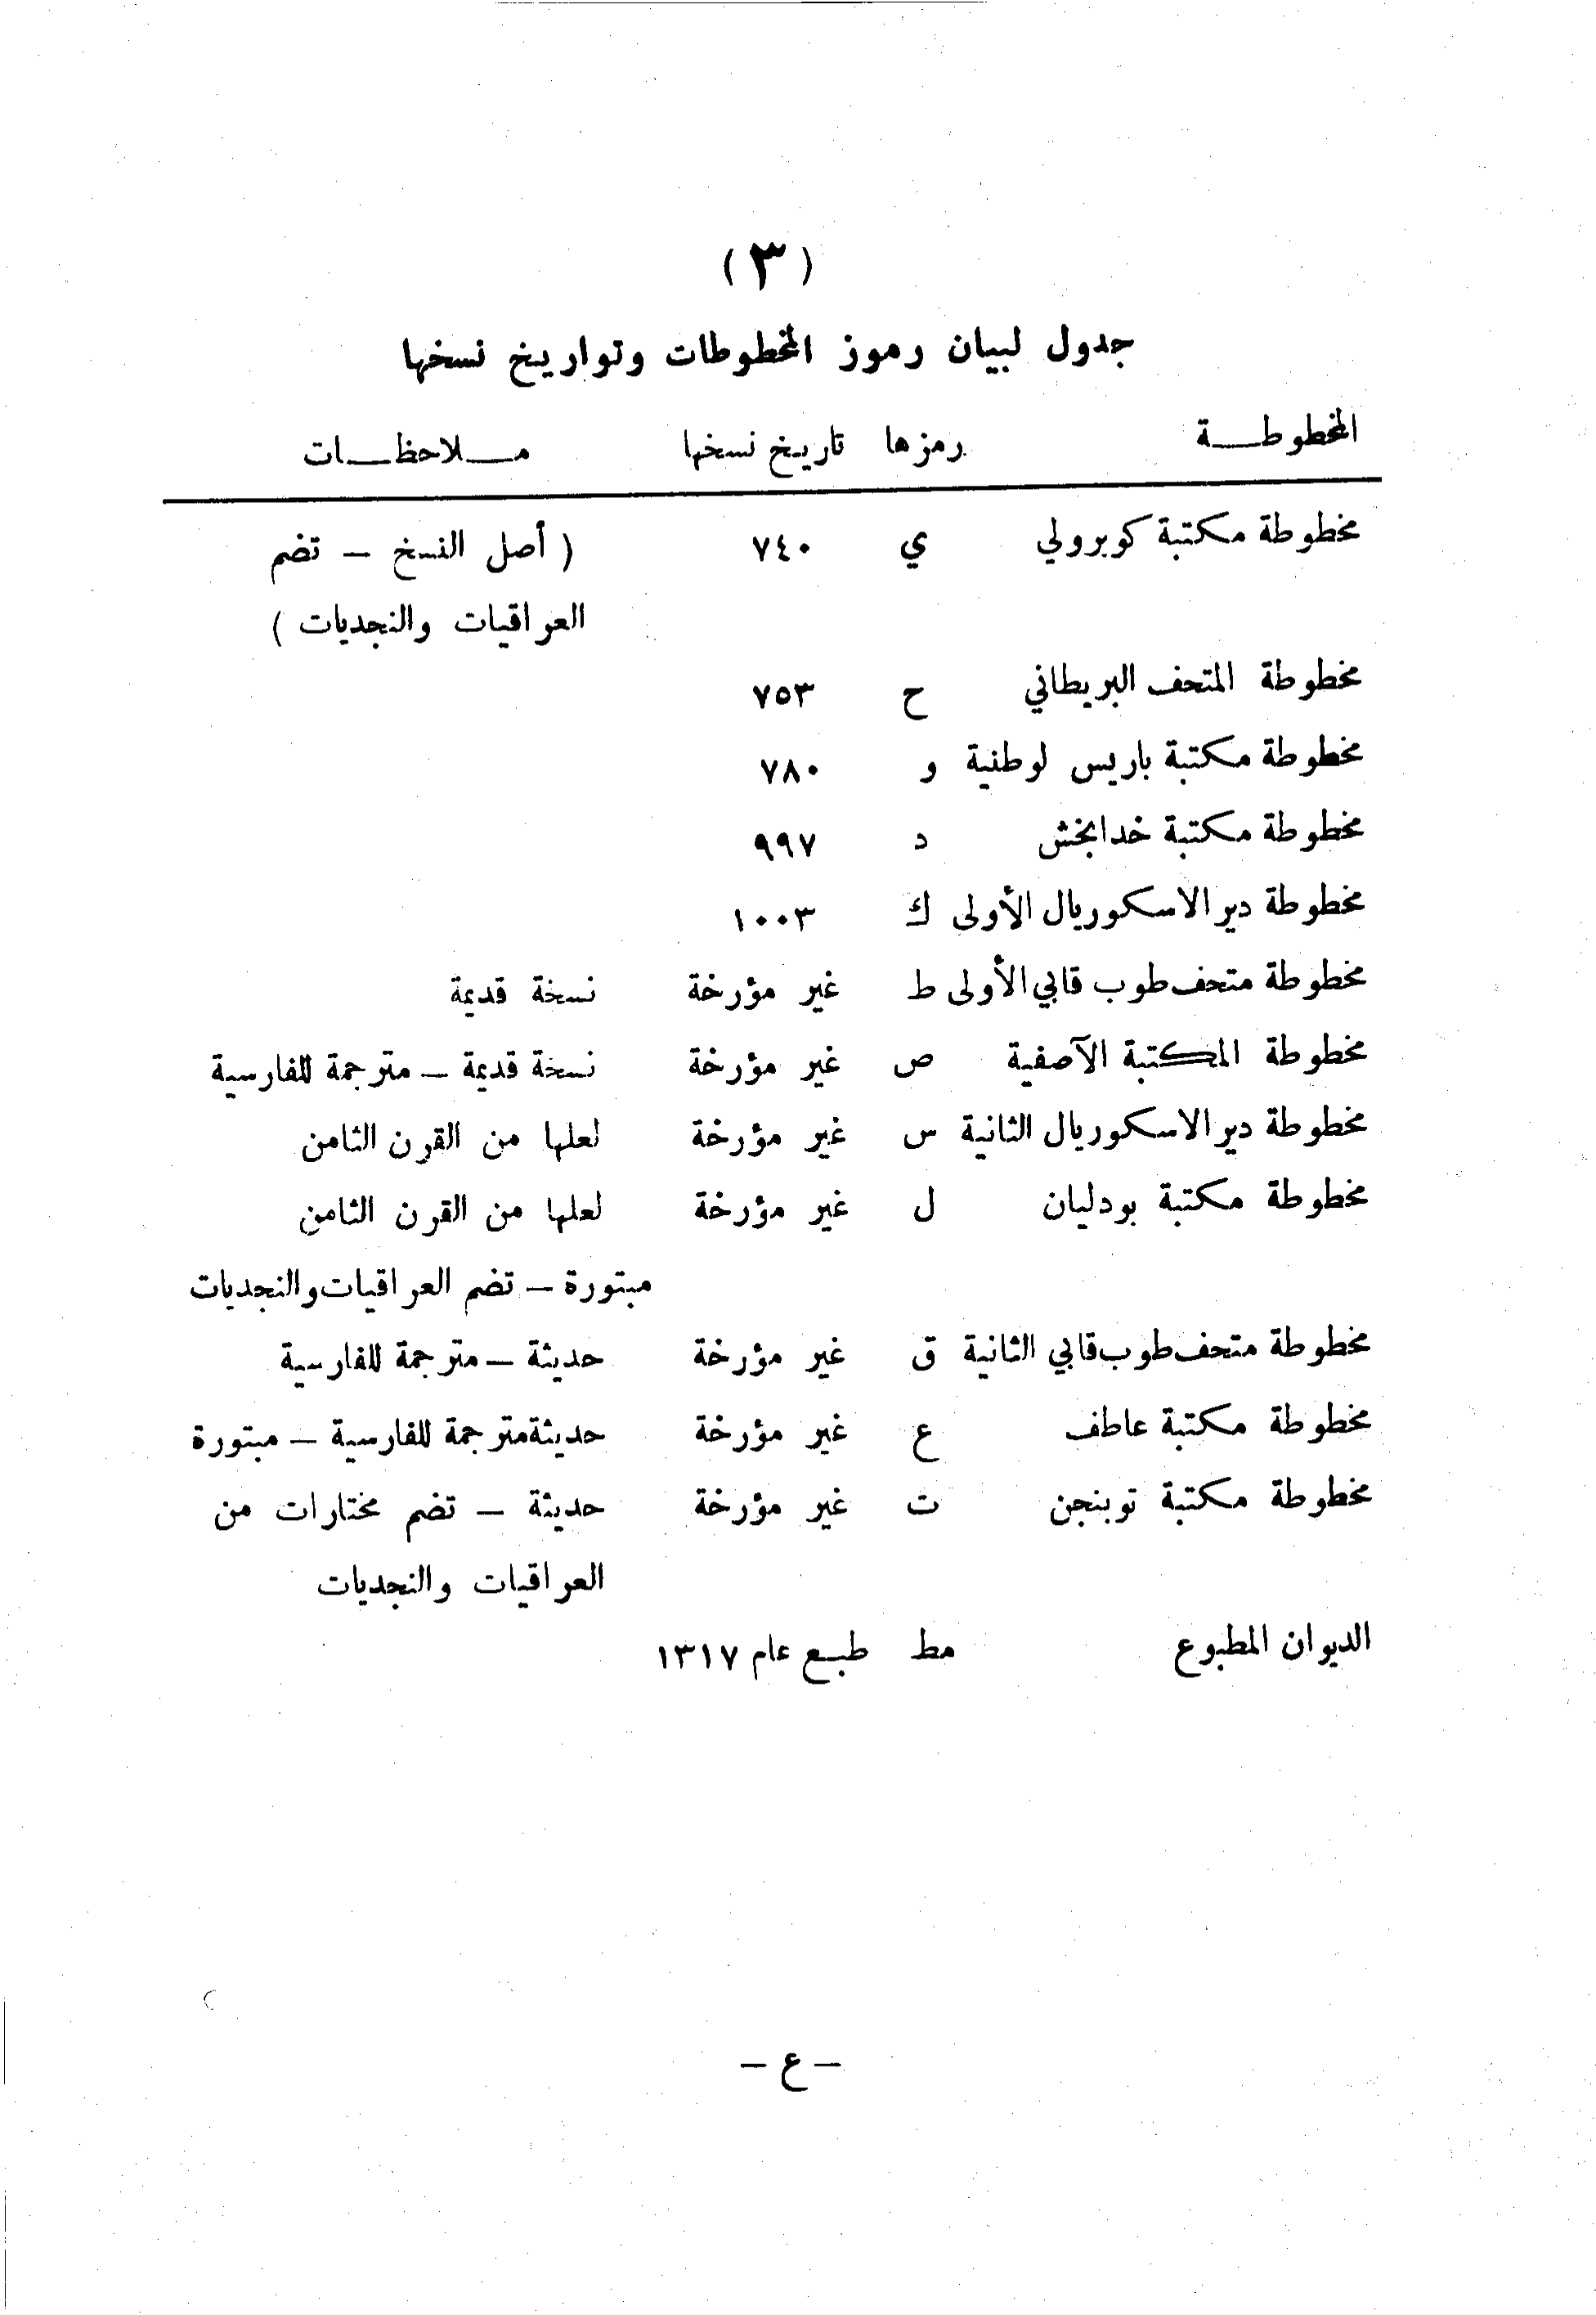 (٣)
جدول لبيان رموز المخطوطات وتواريخ نسخها
المخطوطـــة رمزها تاريخ نسخها مـــلاحظـــات
مخطوطة مكتبة كوبرولي ي ٧٤٠ ( أصل النسخ – تضم
العراقيات والنجديات )
مخطوطة المتحف البريطاني ح ٧٥٣
مخطوطة مكتبة باريس لوطنية و ٧٨٠
مخطوطة مكتبة خدابخش د ٩٩٧
مخطوطة دير الاسكوريال الأولى ك ١٠٠٣
مخطوطة متحف طوب قابي الأولى ط غير مؤرخة نسخة قديمة
مخطوطة المكتبة الآصفية ص غير مؤرخة نسخة قديمة – مترجمة للفارسية
مخطوطة دير الاسكوريال الثانية س غير مؤرخة لعلها من القرن الثامن
مخطوطة مكتبة بودليان ل غير مؤرخة لعلها من القرن الثامن
مبتورة – تضم العراقيات والنجديات
مخطوطة متحف طوب قابي الثانية ق غير مؤرخة حديثة – مترجمة للفارسية
مخطوطة مكتبة عاطف ع غير مؤرخة حديثة مترجمة للفارسية – مبتورة
مخطوطة مكتبة توبنجن ت غير مؤرخة حديثة – تضم مختارات من
العراقيات والنجديات
الديوان المطبوع مط طبع عام ١٣١٧
– ع –